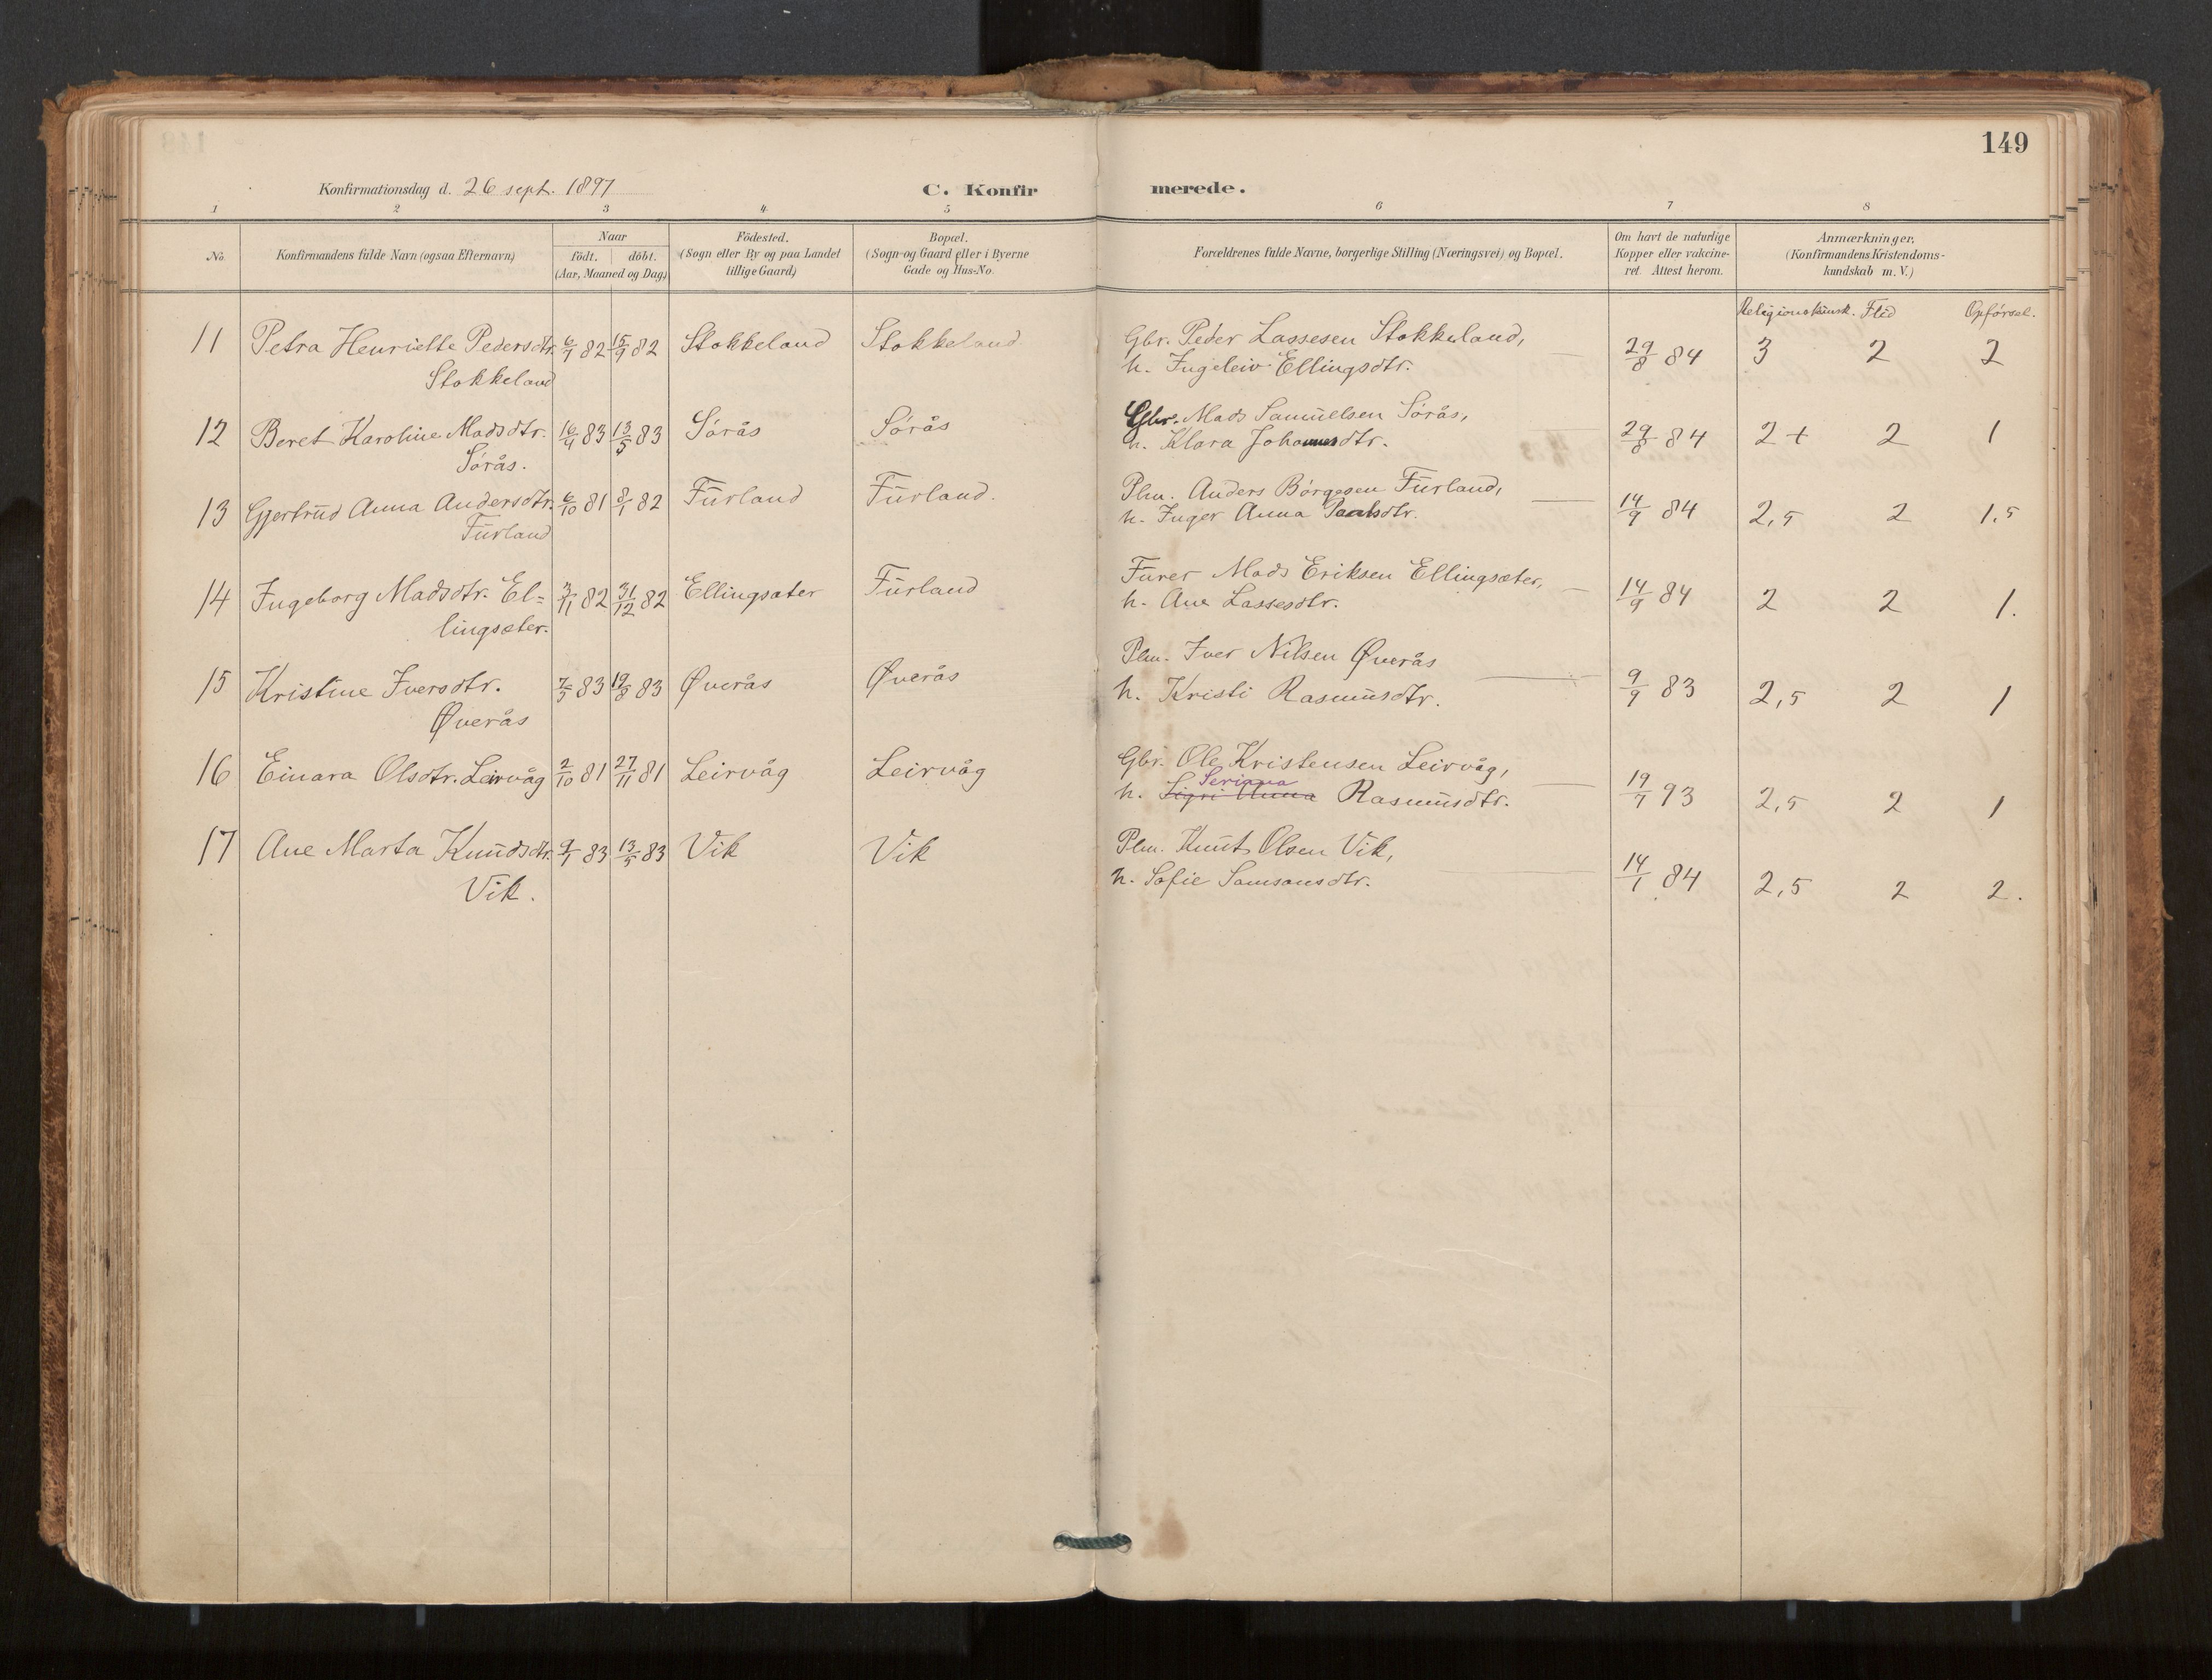 149
Konfirmationsdag d. 26 sept. 1897 C. Konfirmerede.
1 2 3 4 5 6 7 8
No. Konfirmandens fulde Navn (ogsaa Efternavn) Naar födt. döbt. (Aar, Maaned og Dag) Födested. (Sogn eller By og paa Landet tillige Gaard) Bopæl. (Sogn og Gaard eller i Byerne Gade og Hus-No. Forældrenes fulde Navne, borgerlige Stilling (Næringsvei) og Bopæl. Om havt de naturlige Kopper eller vakcineret. Attest herom. Anmærkninger, (Konfirmandens Kristendomskundskab m. V.)
Religionskunsk. Flid Opförsel.
11 Petra Henriette Pedersdtr. 6/7 82 15/9 82 Stokkeland Stokkeland Gbr. Peder Lassesen Stokkeland, 29/8 84 3 2 2
Stokkeland h. Ingeleiv Ellingsdtr.
12 Beret Karoline Madsdtr. 16/4 83 13/5 83 Sörås Sörås Gbr. Mads Samuelsen Sörås, 29/8 84 2+ 2 1
Sörås. h. Klara Johannesdtr.
13 Gjertrud Anna Andersdtr. 6/10 81 8/1 82 Furland Furland. Plm. Anders Börgesen Furland, 14/9 84 2,5 2 1,5
Furland h. Inger Anna Paulsdtr.
14 Ingeborg Madsdtr. El= 3/11 82 31/12 82 Ellingsæter Furland Furer Mads Eriksen Ellingsæter, 14/9 84 2 2 1.
lingsæter. h. Ane Lassesdtr.
15 Kristine Iversdtr. 7/5 83 19/8 83 Øverås Øverås Plm. Iver Nilsen Øverås 9/9 83 2,5 2 1
Øverås h. Kristi Rasmusdtr.
16 Einara Olsdtr. Leirvåg 2/10 81 27/11 81 Leirvåg Leirvåg Gbr. Ole Kristensen Leirvåg, 19/7 93 2,5 2 1
Seriana
h. Sigri Anna Rasmusdtr.
17 Ane Marta Knudsdtr. 9/1 83 13/5 83 Vik Vik Plm. Knut Olsen Vik, 14/1 84 2,5 2 2.
Vik. h. Sofie Samsonsdtr.